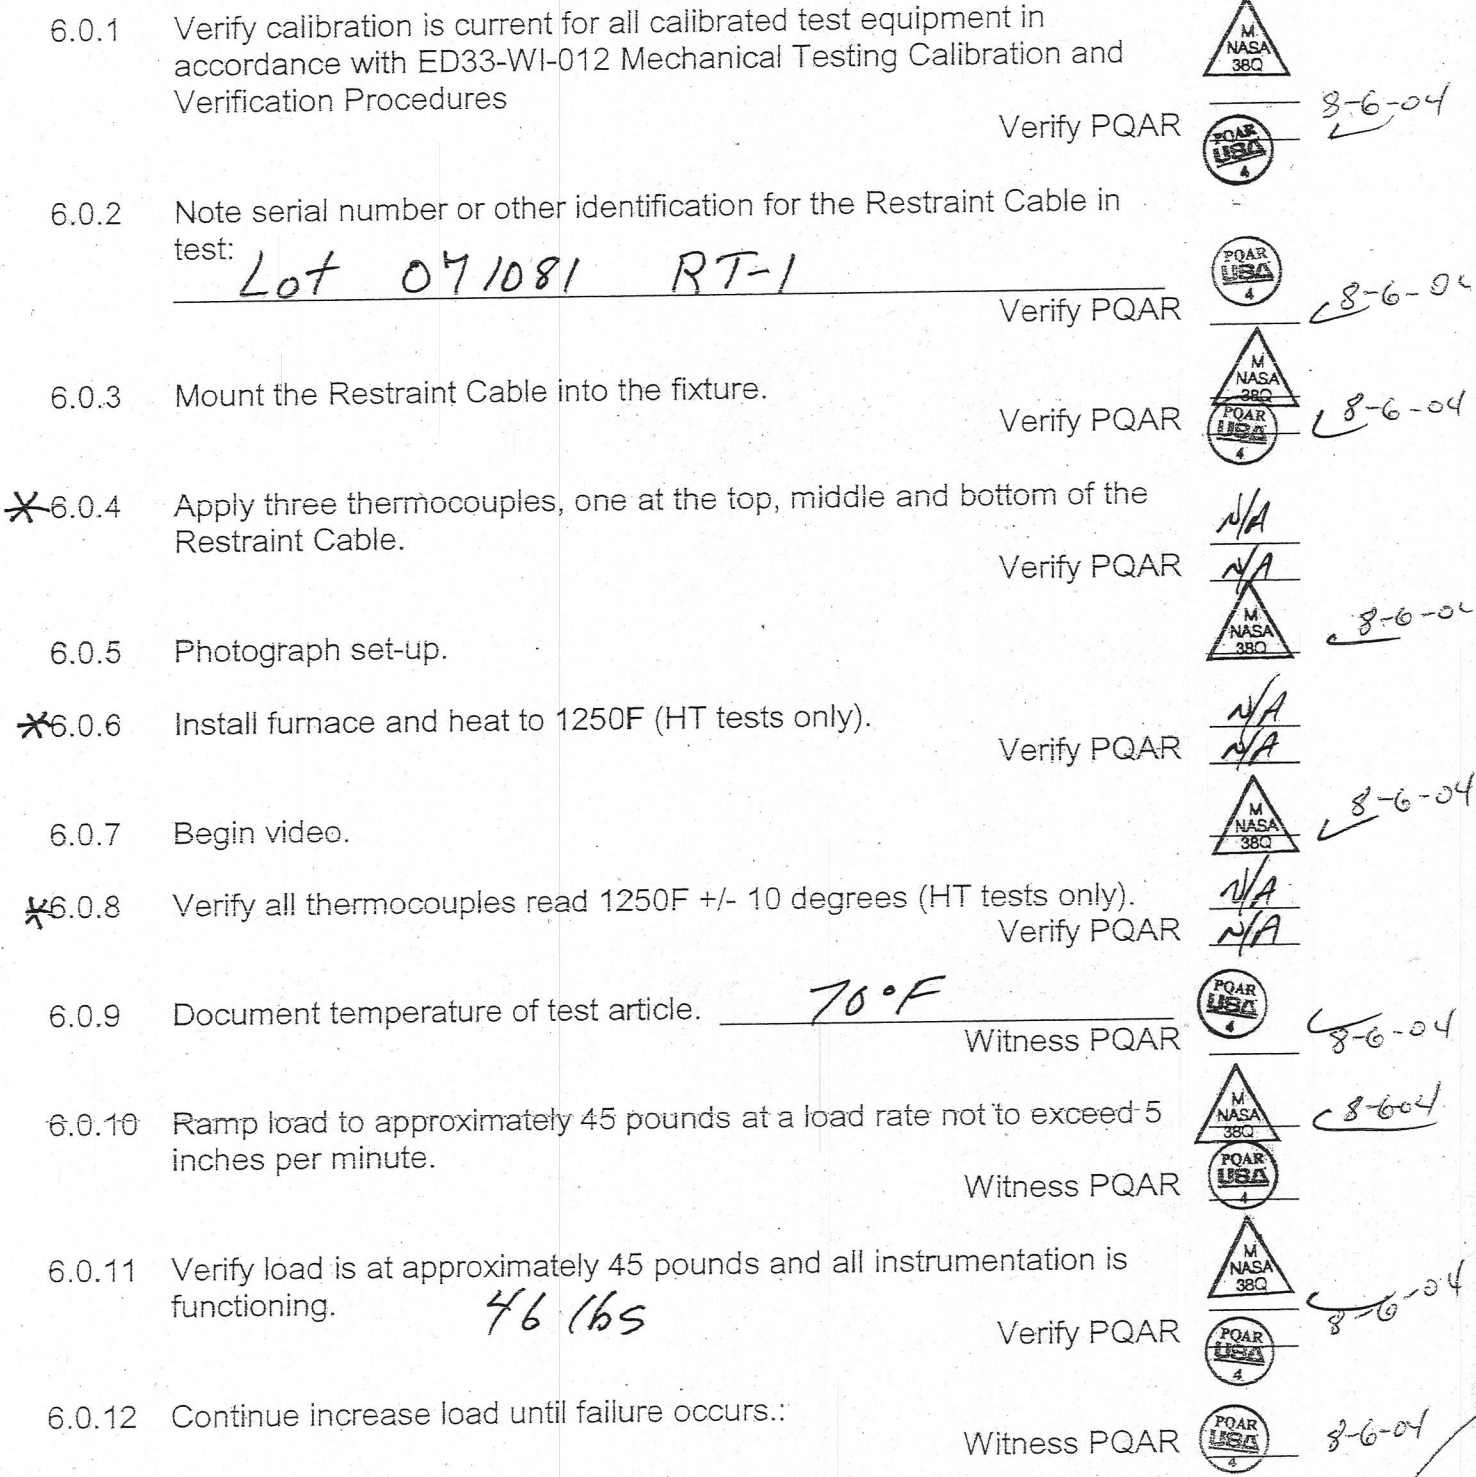 6.0.1 Verify calibration is current for all calibrated test equipment in
accordance with ED33-WI-012 Mechanical Testing Calibration and
Verification Procedures
M
NASA
38Q
Verify PQAR
8-6-04
PQAR
USA
4
6.0.2 Note serial number or other identification for the Restraint Cable in
test: Lot 071081 RT-1
PQAR
USA
4
Verify PQAR
8-6-04
6.0.3 Mount the Restraint Cable into the fixture.
M
NASA
38Q
Verify PQAR
PQAR
USA
4
8-6-04
*6.0.4 Apply three thermocouples, one at the top, middle and bottom of the
Restraint Cable.
N/A
Verify PQAR N/A
6.0.5 Photograph set-up.
M
NASA
38Q
8-6-0
*6.0.6 Install furnace and heat to 1250F (HT tests only).
N/A
Verify PQAR N/A
6.0.7 Begin video.
M
NASA
38Q
8-6-04
*6.0.8 Verify all thermocouples read 1250F +/- 10 degrees (HT tests only).
N/A
Verify PQAR N/A
6.0.9 Document temperature of test article. 70°F
PQAR
USA
4
Witness PQAR
8-6-04
6.0.10 Ramp load to approximately 45 pounds at a load rate not to exceed 5
inches per minute.
M
NASA
38Q
8-6-04
Witness PQAR
PQAR
USA
4
6.0.11 Verify load is at approximately 45 pounds and all instrumentation is
functioning. 46 lbs
M
NASA
38Q
8-6-04
Verify PQAR
PQAR
USA
4
6.0.12 Continue increase load until failure occurs.:
Witness PQAR
PQAR
USA
4
8-6-04